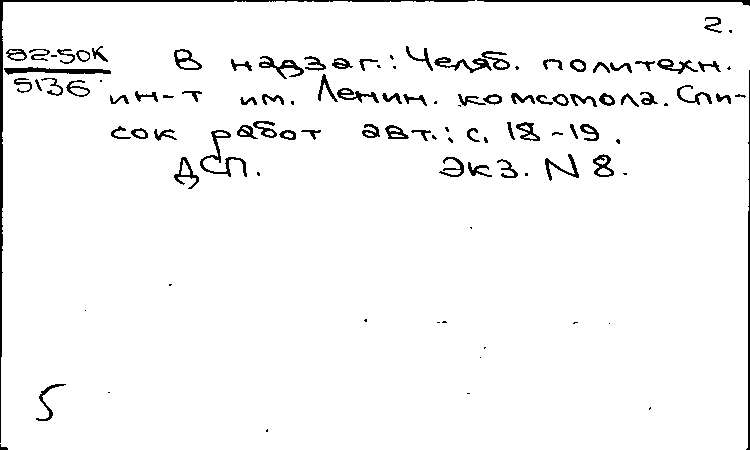 2.
82-50К
5136
В надзаг.: Челяб. политехн.
ин-т им. Ленин. комсомола. Спи-
сок работ авт.: с. 18-19.
ДСП. Экз. N 8.
5